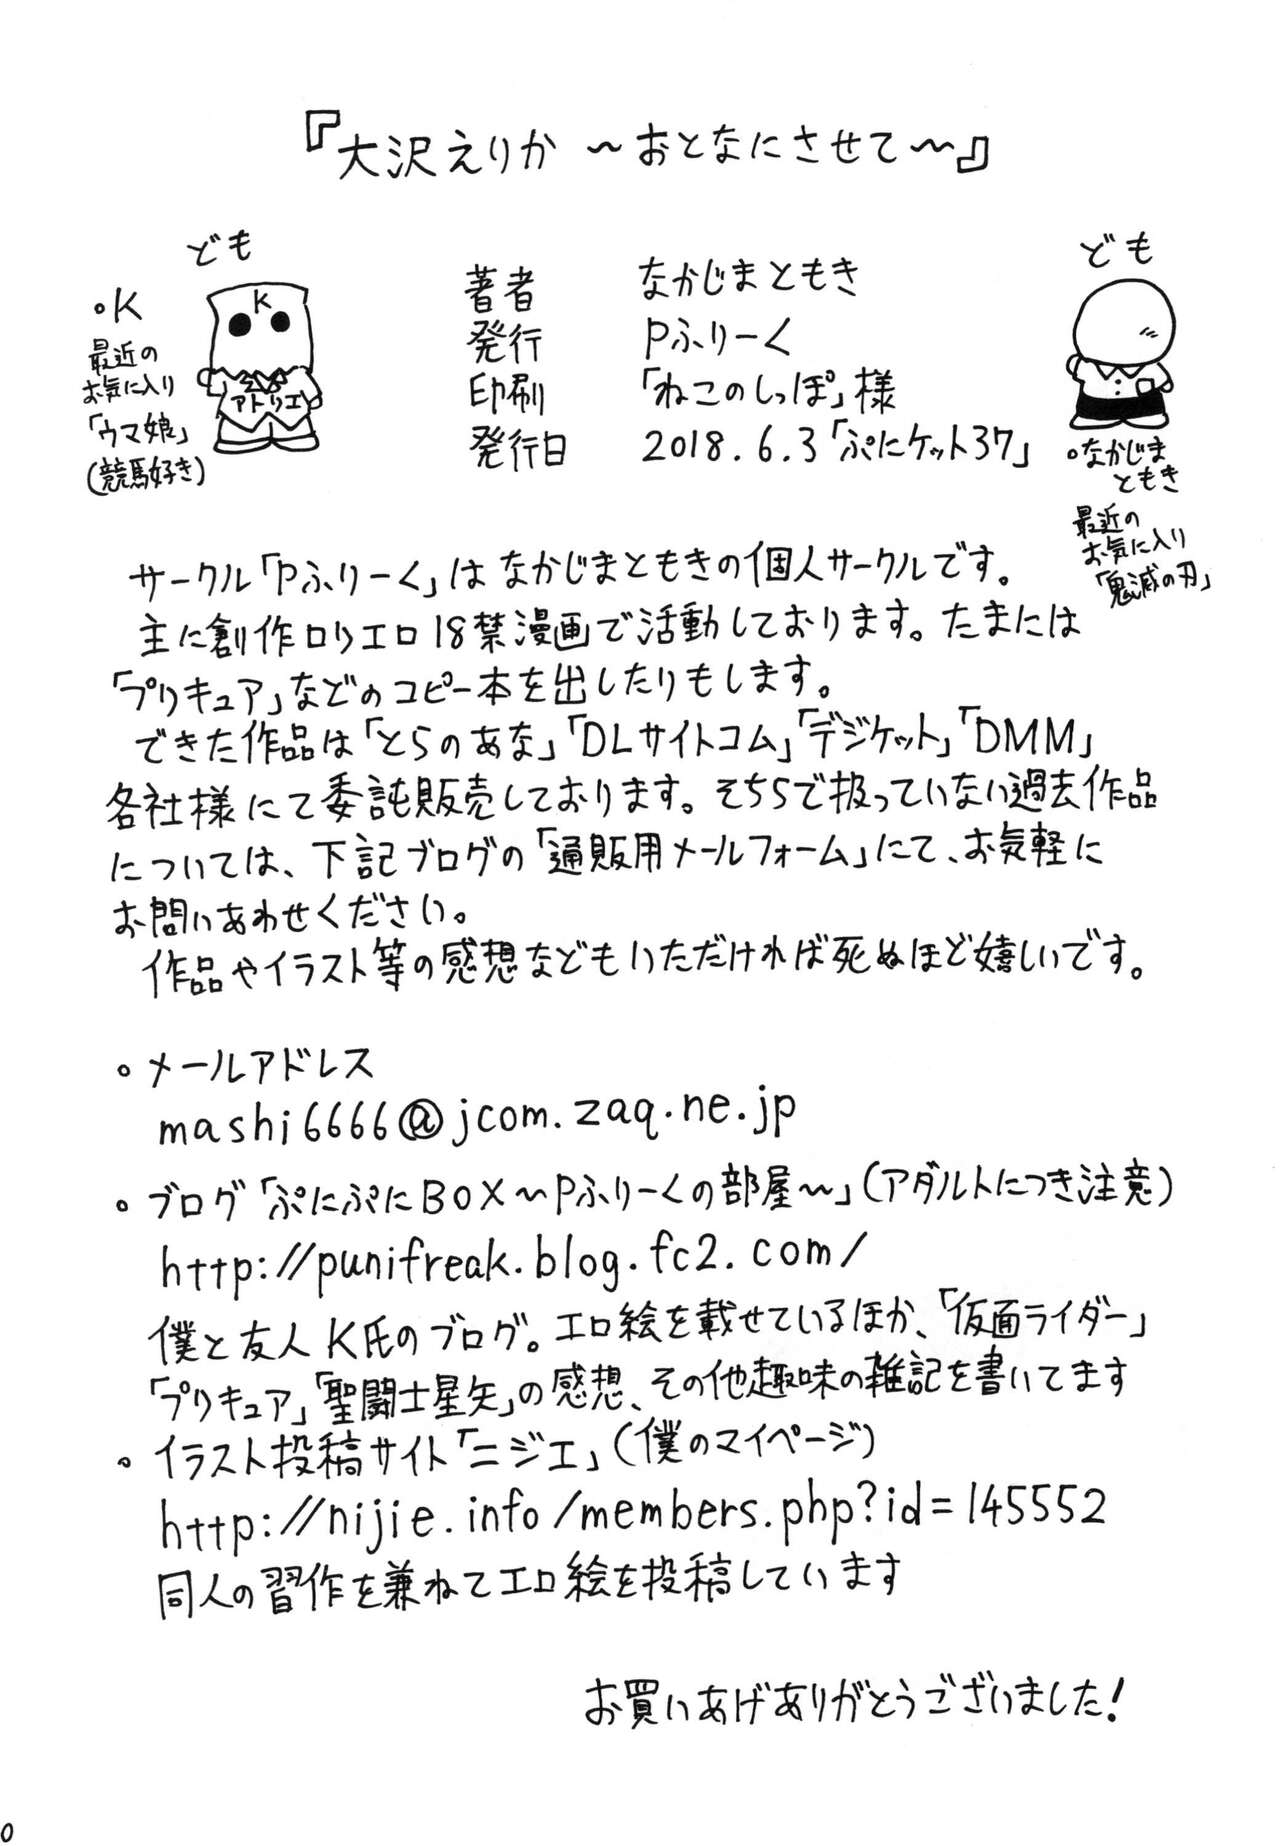 『大沢えりか ～おとなにさせて～』
ども
ども
K
アトリエ
・K
最近の
お気に入り
「ウマ娘」
(競馬好き)
著者 なかじまともき
発行 Pふりーく
印刷 「ねこのしっぽ」様
発行日 2018.6.3「ぷにケット37」
・なかじま
ともき
最近の
お気に入り
「鬼滅の刃」
サークル「Pふりーく」はなかじまともきの個人サークルです。
主に創作ロリエロ18禁漫画で活動しております。たまには
「プリキュア」などのコピー本を出したりもします。
できた作品は「とらのあな」「DLサイトコム」「デジケット」「DMM」
各社様にて委託販売しております。そちらで扱っていない過去作品
については、下記ブログの「通販用メールフォーム」にて、お気軽に
お問いあわせください。
作品やイラスト等の感想などもいただければ死ぬほど嬉しいです。
・メールアドレス
mashi6666@jcom.zaq.ne.jp
・ブログ「ぷにぷにBOX～Pふりーくの部屋～」(アダルトにつき注意)
http://punifreak.blog.fc2.com/
僕と友人K氏のブログ。エロ絵を載せているほか、「仮面ライダー」
「プリキュア」「聖闘士星矢」の感想、その他趣味の雑記を書いてます
・イラスト投稿サイト「ニジエ」(僕のマイページ)
http://nijie.info/members.php?id=145552
同人の習作を兼ねてエロ絵を投稿しています
お買いあげありがとうございました!
0